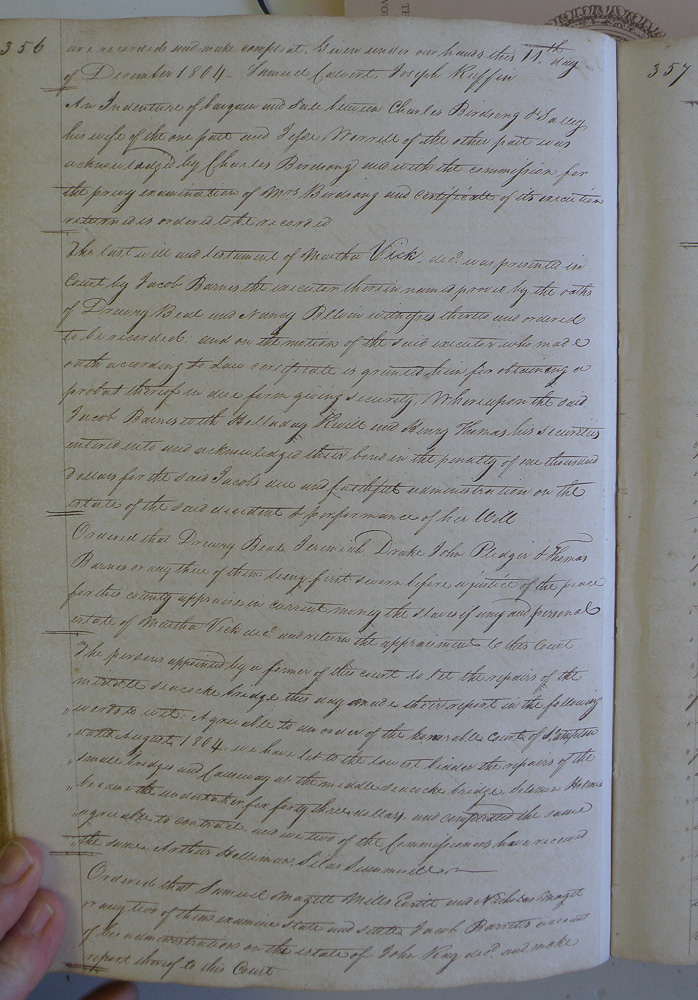 356
are recorded and make compleat. Given under our hands this 11th day
of December 1804 - Samuel Calvert. Joseph Ruffin
An Indenture of bargain and Sale between Charles Birdsong & Salley
his wife of the one part and Jesse Worrell of the other part was
acknowledged by Charles Birdsong and with the commission for
the privy examination of Mrs Birdsong and certificate of its execution
returned is ordered to be recorded
The last will and testament of Martha Vick, decd. was presented in
Court by Jacob Barnes the executor therein named proved by the oaths
of Drewry Beal and Nancy witnesses thereto and ordered
to be recorded and on the motion of the said executor who made
oath according to Law certificate is granted him for obtaining a
probat thereof in due form giving security. Whereupon the said
Jacob Barnes with Holladay and Henry Thomas his securities
entered into and acknowledged their bond in the penalty of one thousand
Dollars for the said Jacobs due and faithful administration on the
estate of the said decedent & performance of her Will
Ordered that Drewry Beal Jeremiah Drake John Pledger & Thomas
Barnes or any three of them being first sworn before a justice of the peace
for this county appraise in current money the slaves if any and personal
estate of Martha Vick decd. and return the appraisment to this Court
The persons appointed by a former of this court to let the repairs of the
middle seacocke bridge this day made their report in the following
words to wit: Agreeable to an order of the honorable Court of
dated August 1804. we have let to the lowest bidder the repairs of the
small bridges and Causeway at the middle seacocke bridge, Solomon Holmes
became the undertaker for forty three dollars, and compleated the same
agreeable to contract, and we two of the Commissioners have received
the same. Arthur Holleman, Silas Summerell
Ordered that Samuel Magett Mills and Nicholas Maget
or any two of them examine state and settle Jacob Barretts account
of his administration on the estate of John Kay decd. and make
report thereof to this Court
357